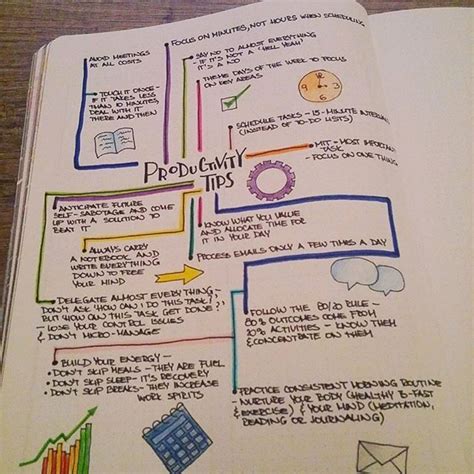 FOCUS ON MINUTES, NOT HOURS WHEN SCHEDULING
AVOID MEETINGS
AT ALL COSTS
SAY NO TO ALMOST EVERYTHING
- IF IT'S NOT A 'HELL YEAH'
IT'S A NO
THEME DAYS OF THE WEEK TO FOCUS
ON KEY AREAS
TOUCH IT ONCE -
IF IT TAKES LESS
THAN 10 MINUTES,
DEAL WITH IT
THERE AND THEN
SCHEDULE TASKS - 15-MINUTE
(INSTEAD OF TO-DO LISTS)
MIT - MOST
TASK
- FOCUS ON ONE
PRODUCTIVITY
TIPS
ANTICIPATE FUTURE
SELF-SABOTAGE AND COME
UP WITH A SOLUTION TO
BEAT IT
KNOW WHAT YOU VALUE
AND ALLOCATE TIME FOR
IT IN YOUR DAY
ALWAYS CARRY
A NOTEBOOK AND
WRITE EVERYTHING
DOWN TO FREE
YOUR MIND
PROCESS EMAILS ONLY A FEW TIMES A DAY
DELEGATE ALMOST EVERYTHING -
DON'T ASK 'HOW CAN I DO THIS TASK?'
BUT 'HOW CAN THIS TASK GET DONE?'
- LOSE YOUR CONTROL ISSUES
& DON'T MICRO-MANAGE
FOLLOW THE 80/20 RULE -
80% OUTCOMES COME FROM
20% ACTIVITIES - KNOW THEM
& CONCENTRATE ON THEM
BUILD YOUR ENERGY -
• DON'T SKIP MEALS - THEY ARE FUEL
• DON'T SKIP SLEEP - IT'S RECOVERY
• DON'T SKIP BREAKS - THEY INCREASE
WORK SPIRITS
PRACTICE CONSISTENT MORNING ROUTINE
- NURTURE YOUR BODY (HEALTHY B-FAST
& EXERCISE) & YOUR MIND (MEDITATION,
READING OR JOURNALING)